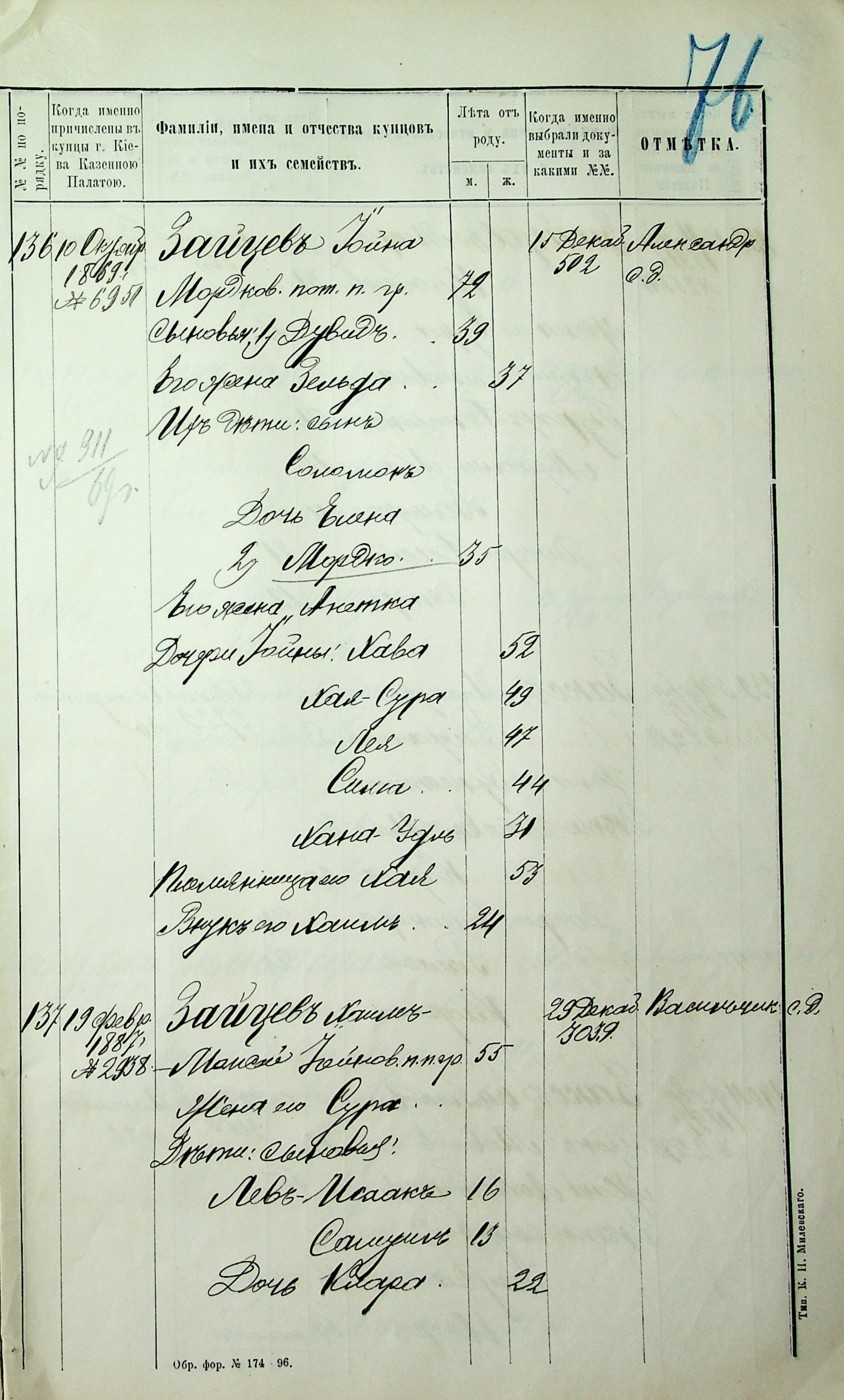 76
№№ по по-
рядку.
Когда именно
причислены въ
купцы г. Кіе-
ва Казенною
Палатою.
Фамиліи, имена и отчества купцовъ
и ихъ семействъ.
Лѣта отъ
роду.
м.
ж.
Когда именно
выбрали доку-
менты и за
какими №№.
ОТМѢТКА.
136 10 Зайцевъ Іойна 15 Декаб. Александр
1869 г. 502 с.д.
№ 6951 Мордков. пот. п. гр. 72
Сыновья: 1) Дувидъ. 39
Его жена Зельда 37
Ихъ дѣти: сынъ
№ 911
69 г.
Соломонъ
Дочь Елена
2) Мордко. 35
Его жена Анетка
Дочери Іойны: Хава 52
Хая-Сура 49
Лея 47
Сима 44
Хана-Удль 31
Племянница его Хая 53
Внукъ его Хаимъ 24
137 19 февр. Зайцевъ Хаимъ- 29 Декаб. Васильчик с.д.
1887 г. 3039.
№ 2938 -Мойсей Іойнов. п.п.гр 55
Жена его Сура
Дѣти: сыновья:
Левъ-Исаакъ 16
Самуилъ 13
Дочь Клара 22
Обр. фор. № 174 96.
Тип. К. Н. Милевскаго.